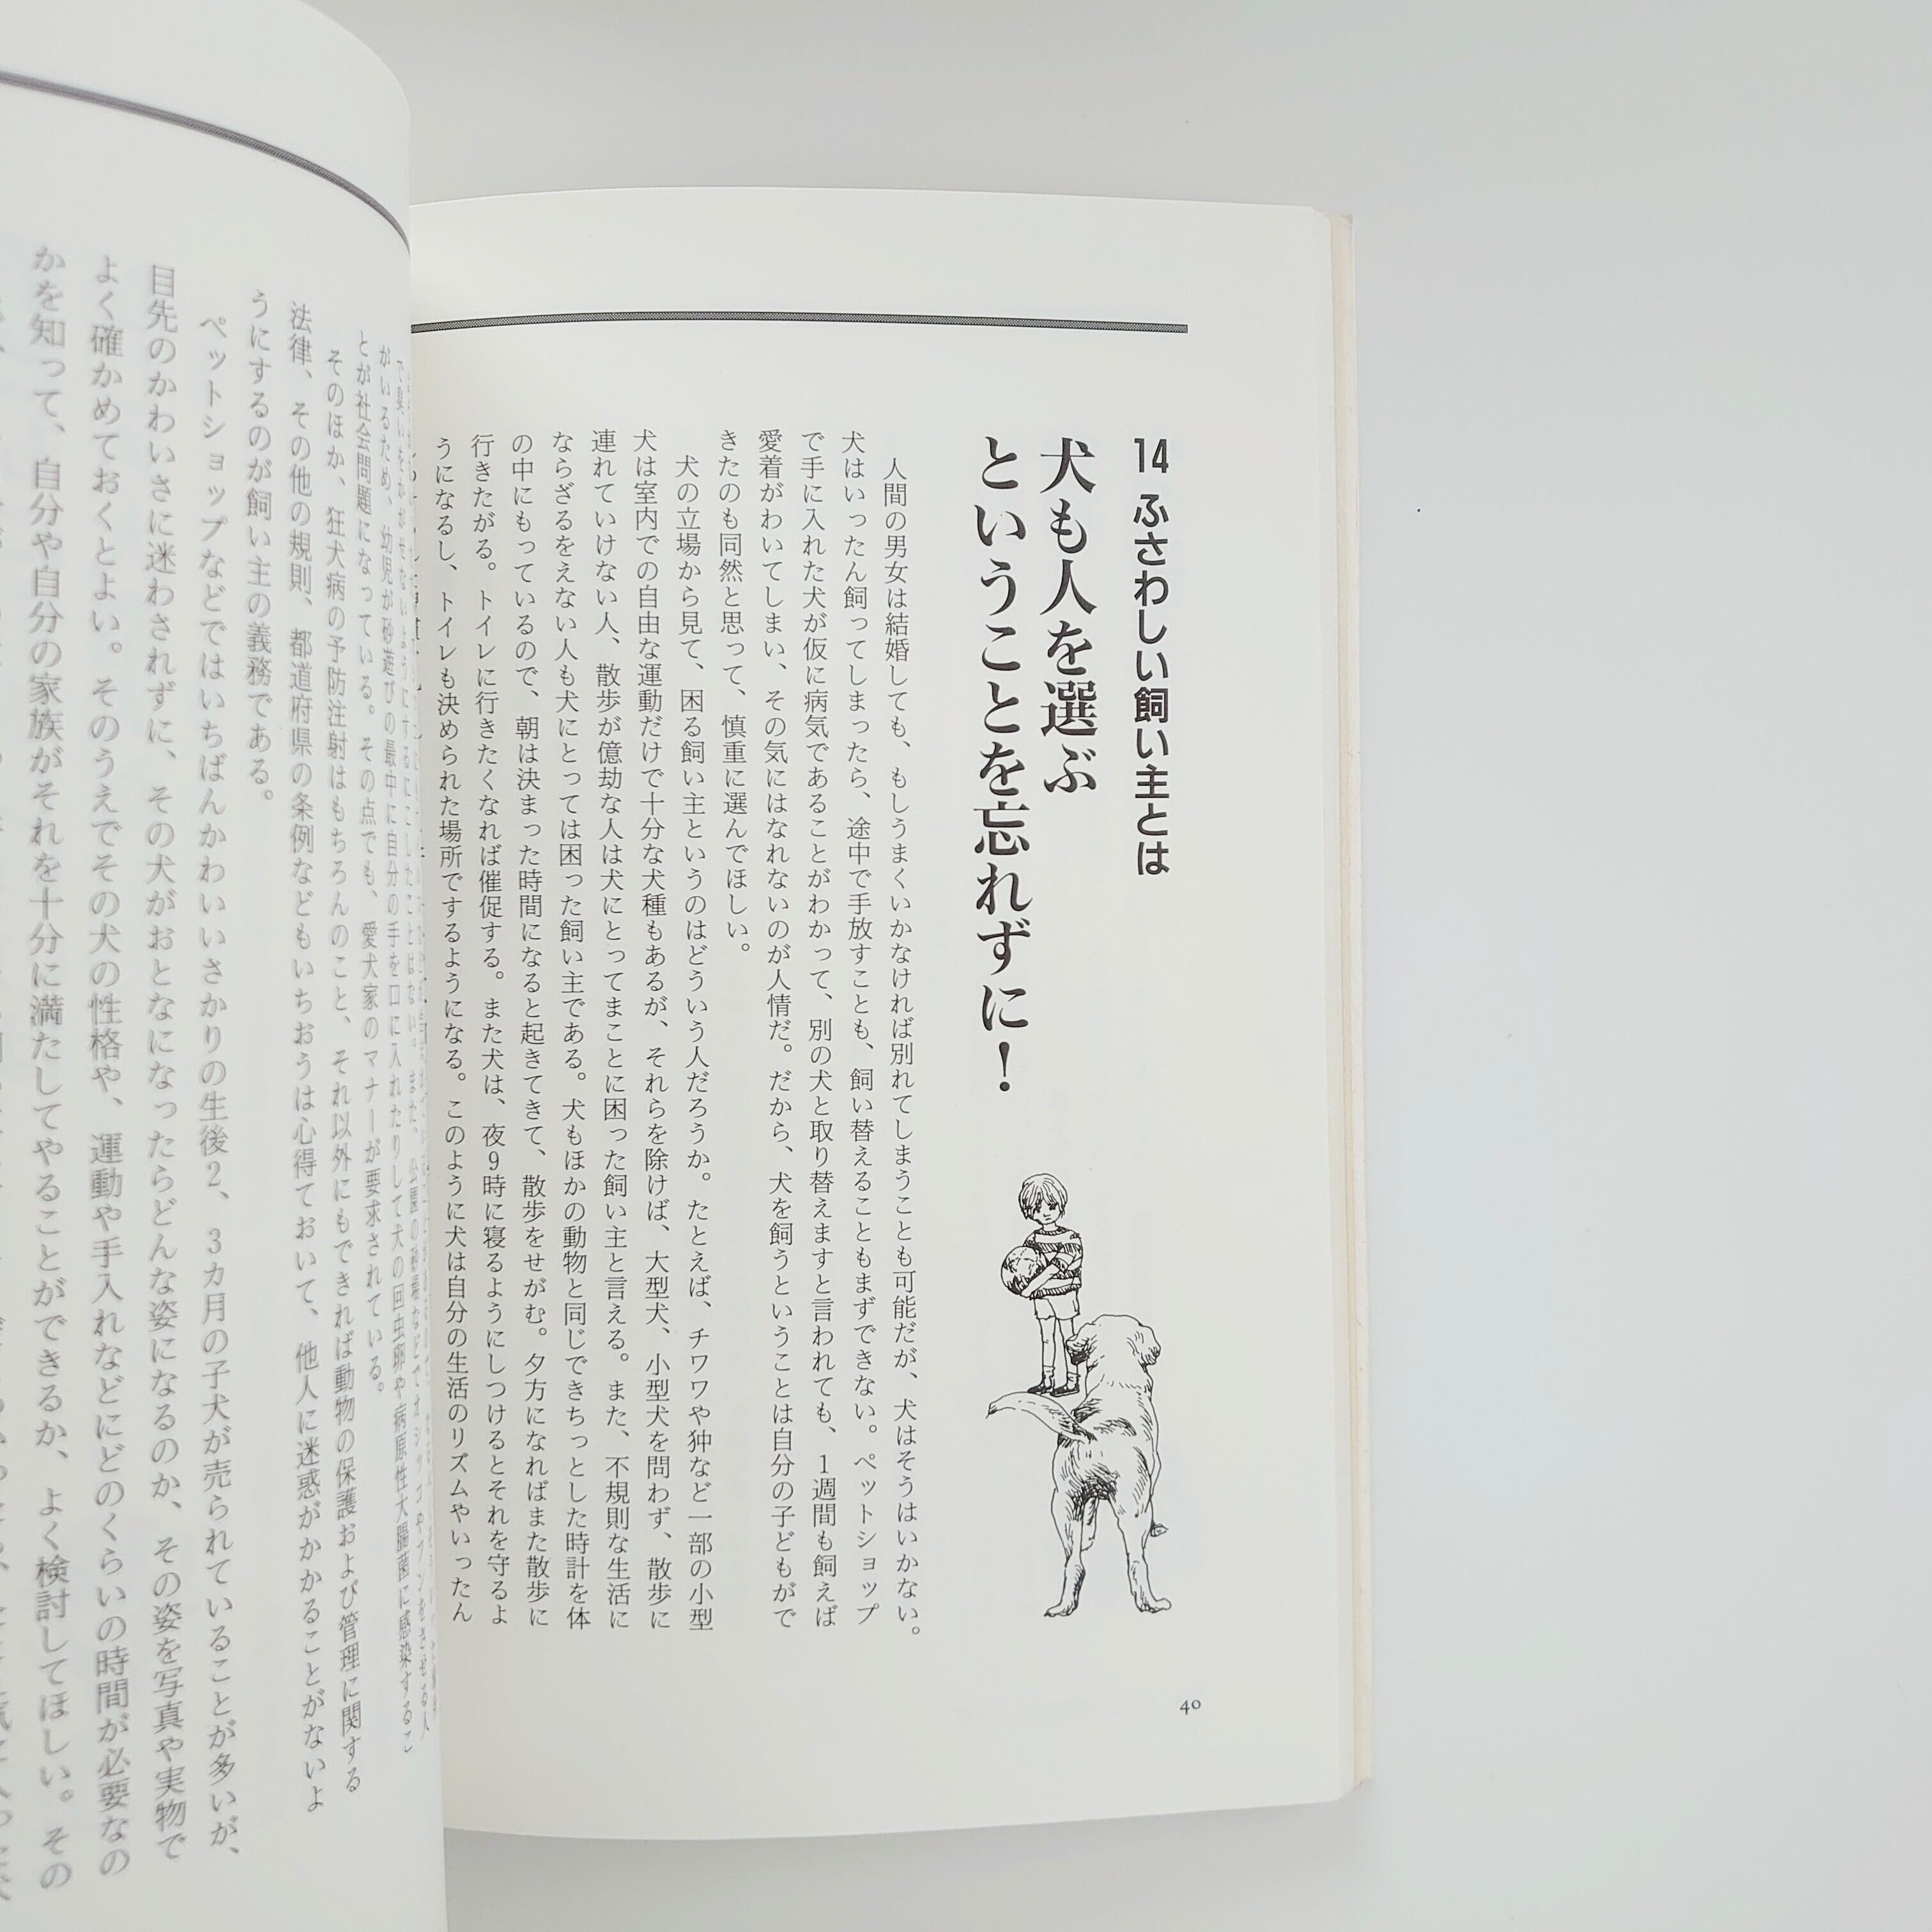 14 ふさわしい飼い主とは
犬も人を選ぶ
ということを忘れずに！
人間の男女は結婚しても、もしうまくいかなければ別れてしまうことも可能だが、犬はそうはいかない。
犬はいったん飼ってしまったら、途中で手放すことも、飼い替えることもまずできない。ペットショップ
で手に入れた犬が仮に病気であることがわかって、別の犬と取り替えますと言われても、1週間も飼えば
愛着がわいてしまい、その気にはなれないのが人情だ。だから、犬を飼うということは自分の子どもがで
きたのも同然と思って、慎重に選んでほしい。
犬の立場から見て、困る飼い主というのはどういう人だろうか。たとえば、チワワや狆など一部の小型
犬は室内での自由な運動だけで十分な犬種もあるが、それらを除けば、大型犬、小型犬を問わず、散歩に
連れていけない人、散歩が億劫な人は犬にとってまことに困った飼い主と言える。また、不規則な生活に
ならざるをえない人も犬にとっては困った飼い主である。犬もほかの動物と同じできちっとした時計を体
の中にもっているので、朝は決まった時間になると起きてきて、散歩をせがむ。夕方になればまた散歩に
行きたがる。トイレに行きたくなれば催促する。また犬は、夜9時に寝るようにしつけるとそれを守るよ
うになるし、トイレも決められた場所でするようになる。このように犬は自分の生活のリズムやいったん
40
で臭いをかがせないようにするにこしたことはない。また、公園の砂場などでオシッコやフンをさせる人
がいるため、幼児が砂遊びの最中に自分の手を口に入れたりして犬の回虫卵や病原性大腸菌に感染するこ
とが社会問題になっている。その点でも、愛犬家のマナーが要求されている。
そのほか、狂犬病の予防注射はもちろんのこと、それ以外にもできれば動物の保護および管理に関する
法律、その他の規則、都道府県の条例などもいちおうは心得ておいて、他人に迷惑がかかることがないよ
うにするのが飼い主の義務である。
ペットショップなどではいちばんかわいいさかりの生後2、3カ月の子犬が売られていることが多いが、
目先のかわいさに迷わされずに、その犬がおとなになったらどんな姿になるのか、その姿を写真や実物で
よく確かめておくとよい。そのうえでその犬の性格や、運動や手入れなどにどのくらいの時間が必要なの
かを知って、自分や自分の家族がそれを十分に満たしてやることができるか、よく検討してほしい。その